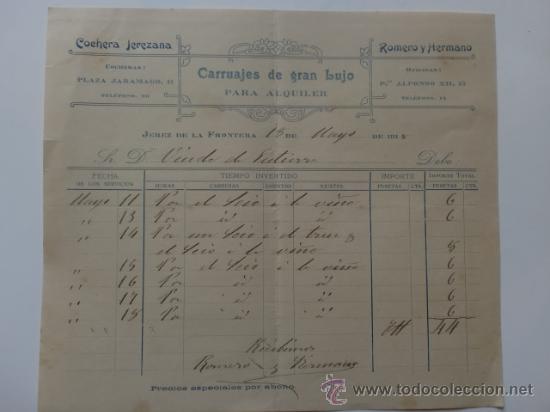 Cochera Jerezana
Romero y Hermano
COCHERAS:
PLAZA JARAMAGO, 11
TELÉFONO,
Carruajes de gran Lujo
PARA ALQUILER
OFICINAS:
P.ZA ALFONSO XII, 13
TELÉFONO, 14
JEREZ DE LA FRONTERA 18 DE Mayo DE 191
Sr. D. Viuda de Debe:
FECHA DE LOS SERVICIOS
TIEMPO INVERTIDO
IMPORTE
IMPORTE TOTAL
HORAS CARRERAS ASIENTOS VIAJES PESETAS CTS. PESETAS CTS.
Mayo 11 Por el la viña 6
" 13 Por id id 6
" 14 Por un á el tren y
el la viña 8
" 15 Por el la viña 6
" 16 Por id id 6
" 17 Por id id 6
" 18 Por id id 6
44
Recibimos
Romero y Hermano
Precios especiales por abono
www.todocoleccion.net